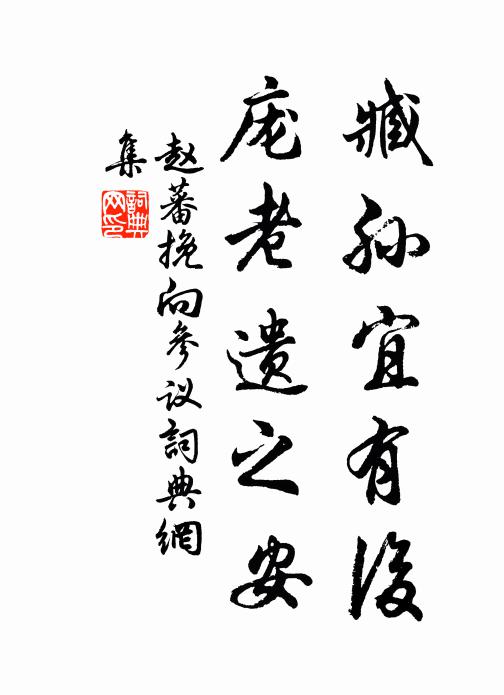 臧孙宜有后
庞老遗之安
赵蕃挽向参议詞典網
集
詞典网印